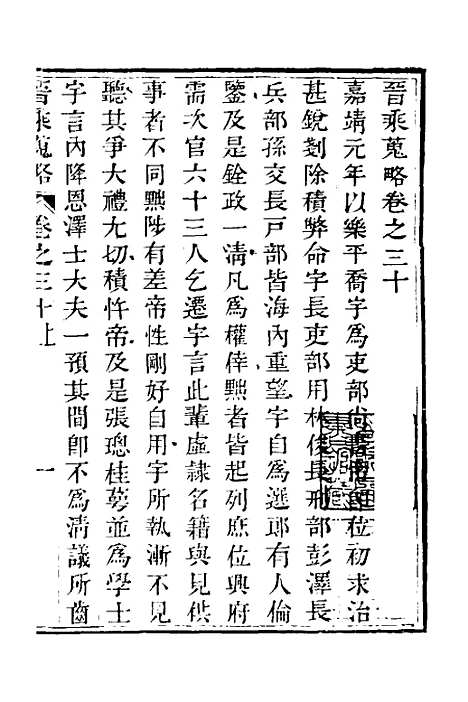 晉乘蒐略卷之三十
嘉靖元年以樂平喬宇爲吏部尚書帝卽位初求治
甚銳剗除積弊命宇長吏部用林俊長刑部彭澤長
兵部孫交長戸部皆海內重望宇自爲選郎有人倫
鑒及是銓政一淸凡爲權倖黜者皆起列庶位興府
需次官六十三人乞遷宇言此輩虛隷名籍與見供
事者不同黜陟有差帝性剛好自用宇所執漸不見
聽其爭大禮尢切積忤帝及是張璁桂萼並爲學士
宇言內降恩澤士大夫一預其間卽不爲淸議所齒
晉乘蒐略 卷之三十上 一